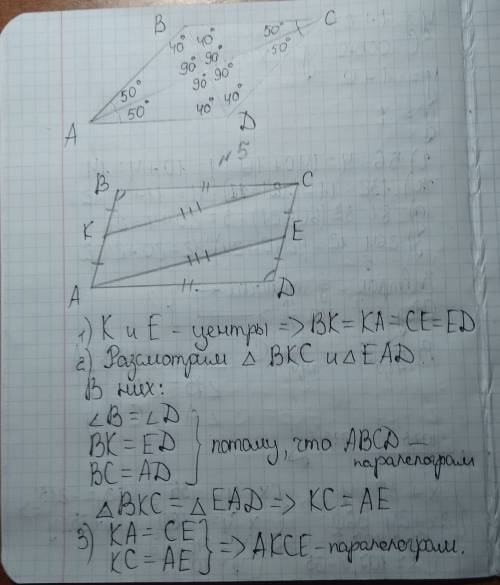 B C
40° 40° 50° 50°
90° 90° 90° 90°
50° 50° 40° 40°
A D
№5
B C
K E
A D
1) K и E - центры => BK = KA = CE = ED
2) Разсмотрим △ BKC и △ EAD.
В них:
∠B = ∠D
BK = ED } потому, что ABCD —
BC = AD паралелограм
△BKC = △EAD => KC = AE
3) KA = CE
KC = AE } => AKCE - паралелограм.